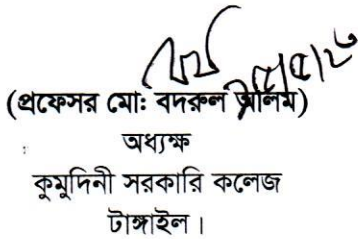 (প্রফেসর মোঃ বদরুল আলিম)
অধ্যক্ষ
কুমুদিনী সরকারি কলেজ
টাঙ্গাইল।